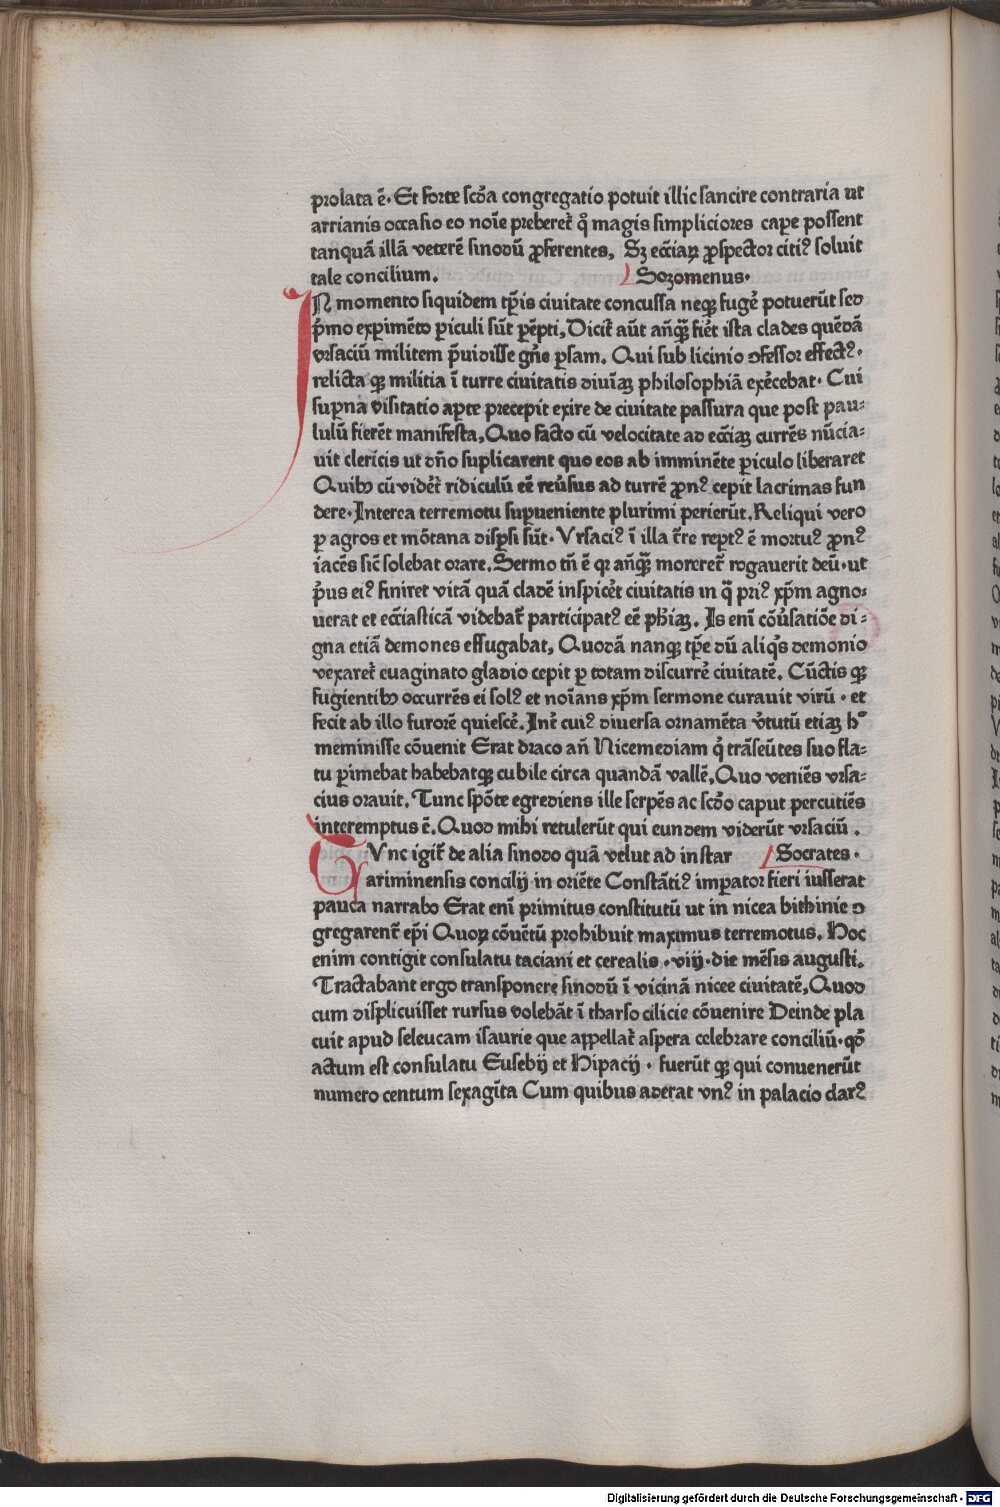 prolata ē. Et forte scd̄a congregatio potuit illic sancire contraria ut
arrianis occasio eo noīe preberet̄ q̄ magis simpliciores cape possent
tanquā illā veterē sinodū ꝓferentes, Sꝫ ecc̄iaꝝ ꝓspector citiꝰ soluit
tale concilium. Sozomenus.
IN momento siquidem tp̄is ciuitate concussa neqꝫ fugē potuerūt sed
p̄mo expimēto piculi sūt pēpti, Dicit̄ aūt an̄qꝫ fiēt ista clades quēdā
vrsaciū militem p̄uidisse gn̄e psam. Qui sub licinio ↄfessor effectꝰ.
relicta qꝫ militia ī turre ciuitatis diuīaꝫ philosophiā exēcebat. Cui
supna visitatio apte precepit exire de ciuitate passura que post pau⸗
lulū fierēt manifesta, Quo facto cū velocitate ad ecc̄iaꝫ currēs nūcia⸗
uit clericis ut dn̄o suplicarent quo eos ab imminēte piculo liberaret
Quibꝫ cū vidēt̄ ridiculū eē reūsus ad turrē ꝓnꝰ cepit lacrimas fun
dere. Interea terremotu supueniente plurimi perierūt. Reliqui vero
ꝑ agros et mōtana dispsi sūt. Vrsaciꝰ ī illa t̄re reptꝰ ē mortuꝰ ꝓnꝰ
iacēs sic̄ solebat orare. Sermo tn̄ ē qꝛ an̄qꝫ moreret̄ rogauerit deū. ut
p̄us eiꝰ finiret vitā quā cladē inspicēt ciuitatis in q̄ priꝰ xp̄m agno⸗
uerat et ecc̄iasticā videbat̄ participatꝰ eē phīaꝫ. Is enī cōūsatiōe di⸗
gna etiā demones effugabat, Quodā nanqꝫ tp̄e dū aliq̄s demonio
vexaret̄ euaginato gladio cepit ꝑ totam discurrē ciuitatē. Cūctis qꝫ
fugientibꝫ occurrēs ei solꝰ et noīans xp̄m sermone curauit virū . et
fecit ab illo furorē quiescē. Int̄ cuiꝰ diuersa ornamēta v̄tutū etiaꝫ hꝰ
meminisse cōuenit Erat draco an̄ Nicemediam q̄ trāseūtes suo fla⸗
tu pimebat habebatqꝫ cubile circa quandā vallē, Quo veniēs vrsa⸗
cius orauit. Tunc spōte egrediens ille serpēs ac scd̄o caput percutiēs
interemptus ē. Quod mihi retulerūt qui eundem viderūt vrsaciū .
TVnc igit̄ de alia sinodo quā velut ad instar Socrates.
ariminensis concilij in oriēte Constātiꝰ impator fieri iusserat
pauca narrabo Erat enī primitus constitutū ut in nicea bithinie ↄ
gregarent̄ ep̄i Quoꝝ cōuētū prohibuit maximus terremotus. Hoc
enim contigit consulatu taciani et cerealis . viij. die mēsis augusti.
Tractabant ergo transponere sinodū ī vicinā nicee ciuitatē, Quod
cum displicuisset rursus volebāt ī tharso cilicie cōuenire Deinde pla
cuit apud seleucam isaurie que appellat̄ aspera celebrare conciliū. qd̄
actum est consulatu Eusebij et Hipacij . fuerūt qꝫ qui conuenerūt
numero centum sexagīta Cum quibus aderat vnꝰ in palacio clarꝰ
Digitalisierung gefördert durch die Deutsche Forschungsgemeinschaft - DFG